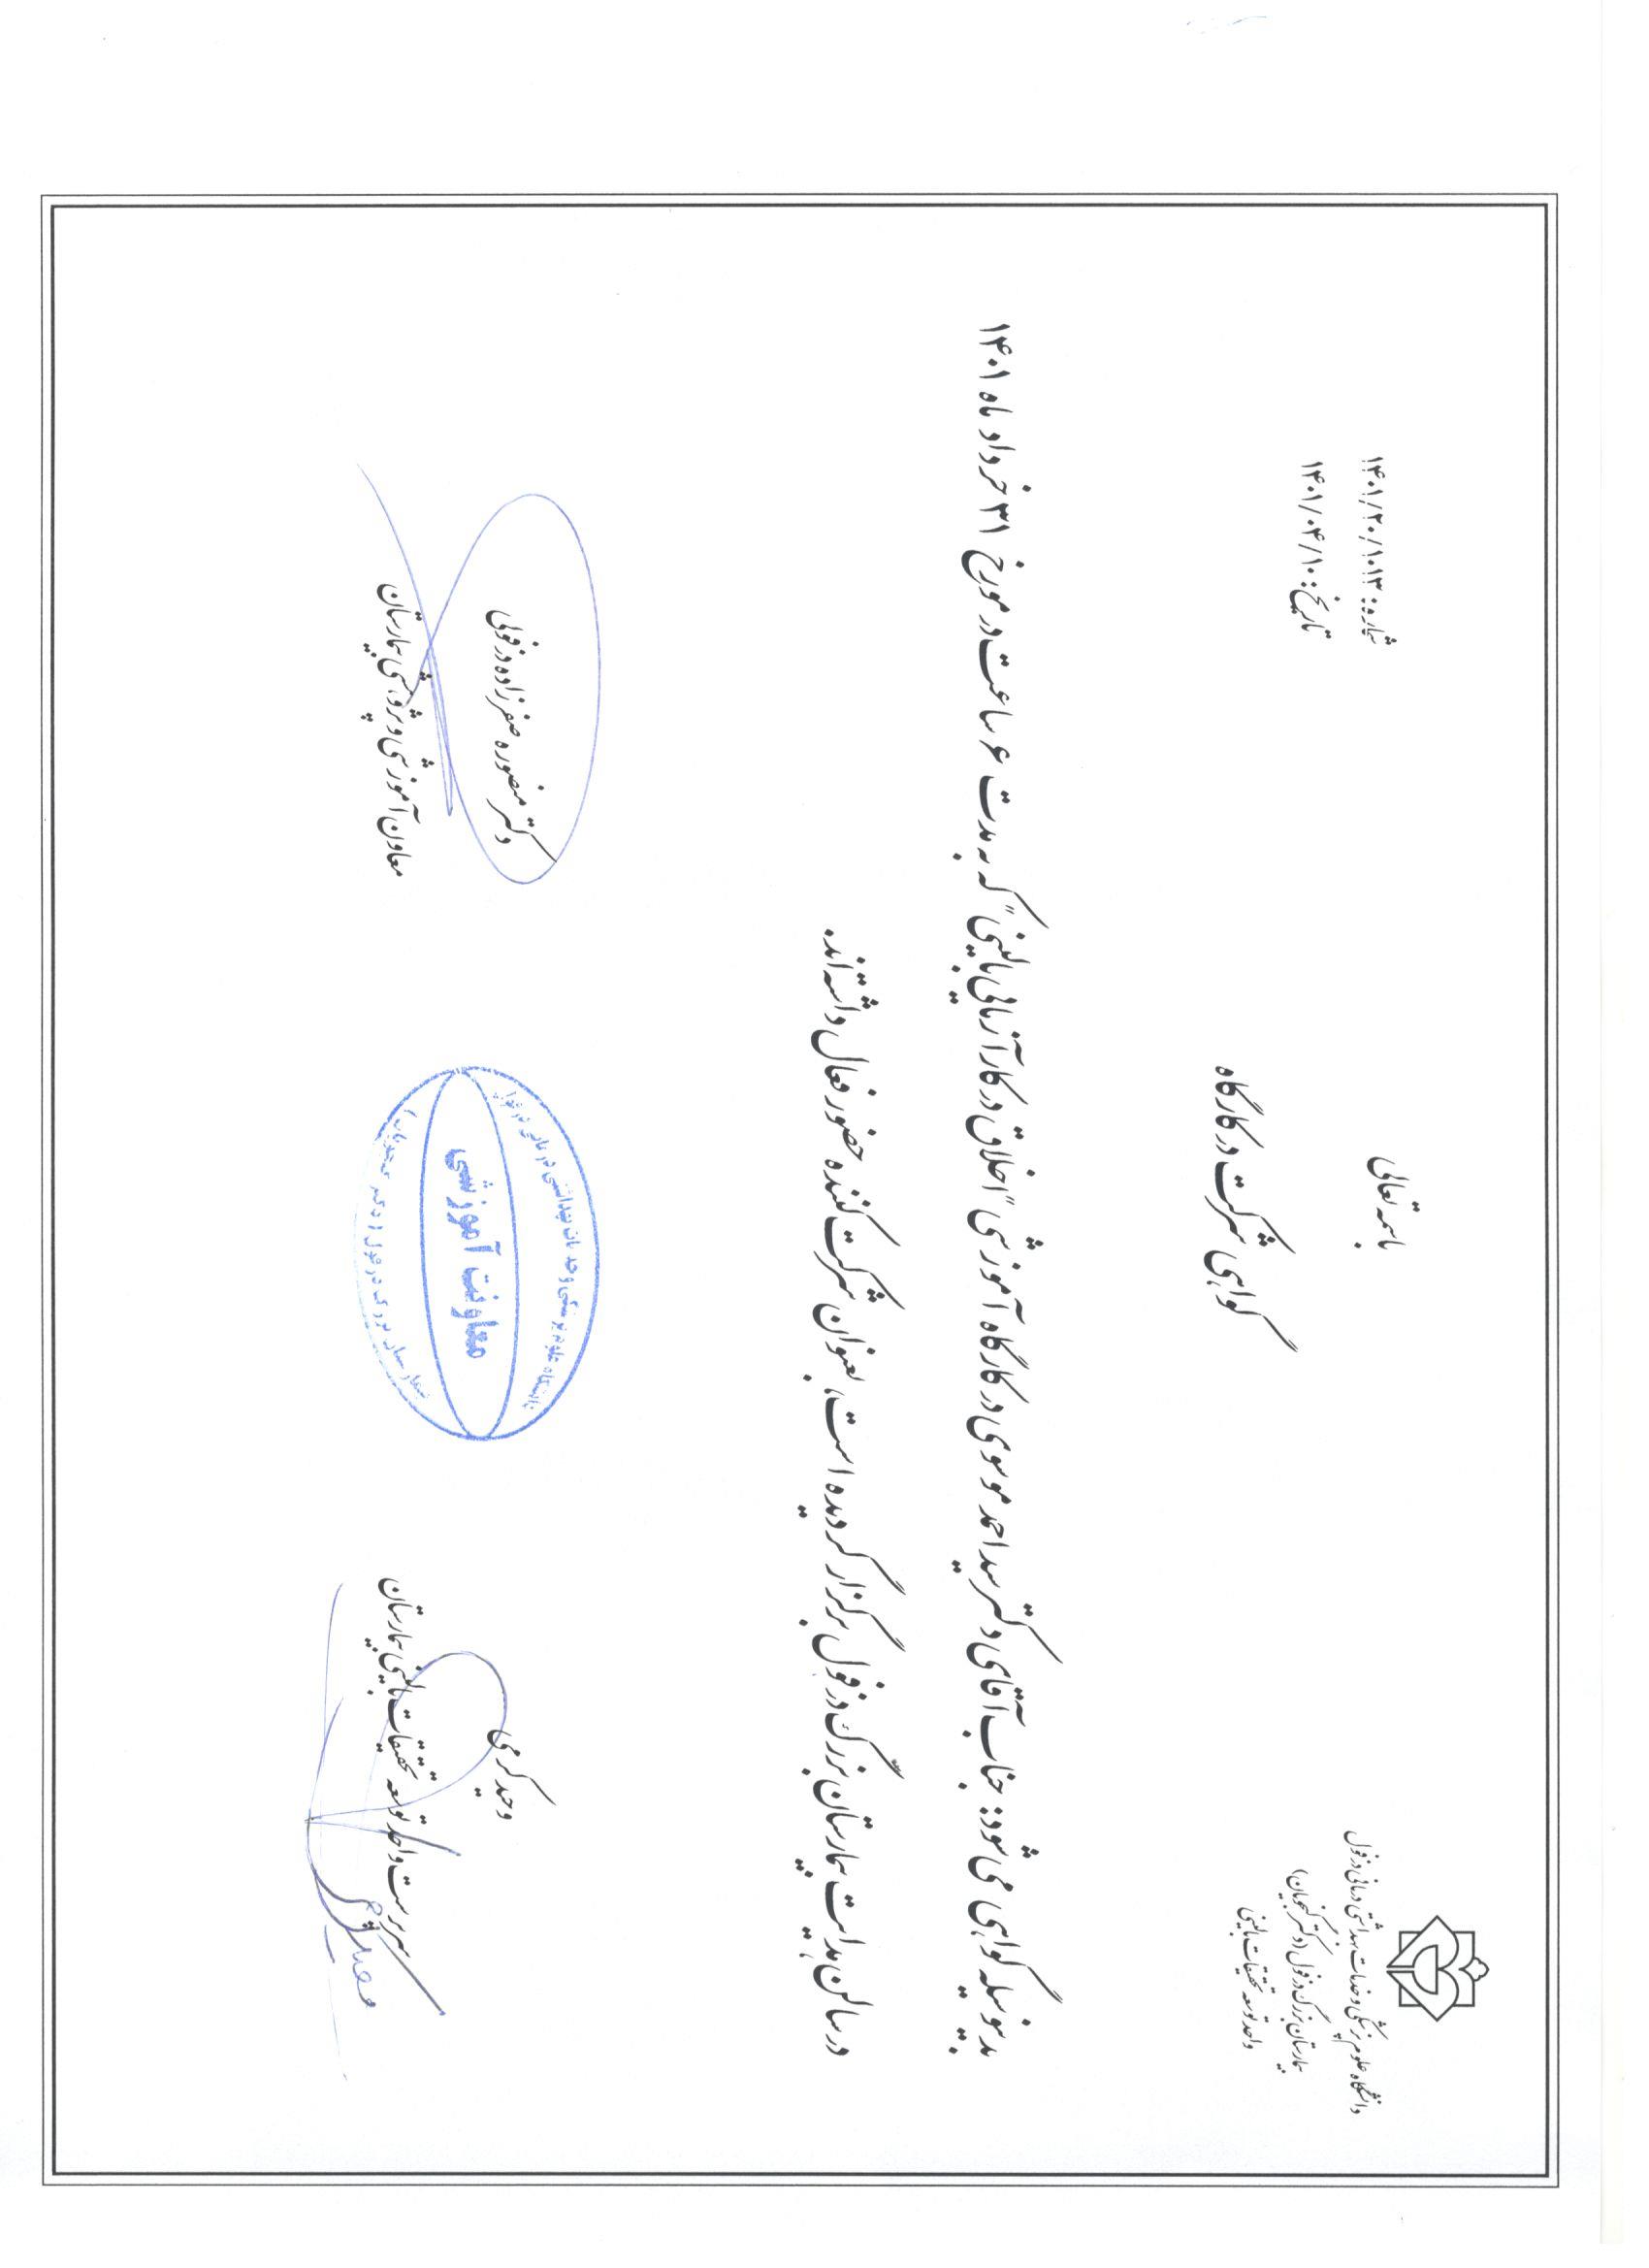 باسمه تعالی
دانشگاه علوم پزشکی و خدمات بهداشتی درمانی دزفول
بیمارستان بزرگ دزفول (دکتر گنجویان)
واحد توسعه تحقیقات بالینی
شماره: ۱۴۰۱/۲۰/۱۰۱۳
تاریخ: ۱۴۰۱/۰۴/۱۰
گواهی شرکت در کارگاه
بدینوسیله گواهی می شود: جناب آقای دکتر سید احمد موسوی در کارگاه آموزشی "اخلاق در کارآزمایی بالینی" که به مدت ۶ ساعت در مورخ ۳۱ خرداد ماه ۱۴۰۱
در سالن هدایت بیمارستان بزرگ دزفول برگزار گردیده است، بعنوان شرکت کننده حضور فعال داشته اند.
وحید کرمی
سرپرست واحد توسعه تحقیقات بالینی بیمارستان
دانشگاه علوم پزشکی و خدمات بهداشتی درمانی دزفول
معاونت آموزشی
بیمارستان بزرگ دزفول
دکتر منصوره صفرزاده دزفولی
معاون آموزشی و پژوهشی بیمارستان